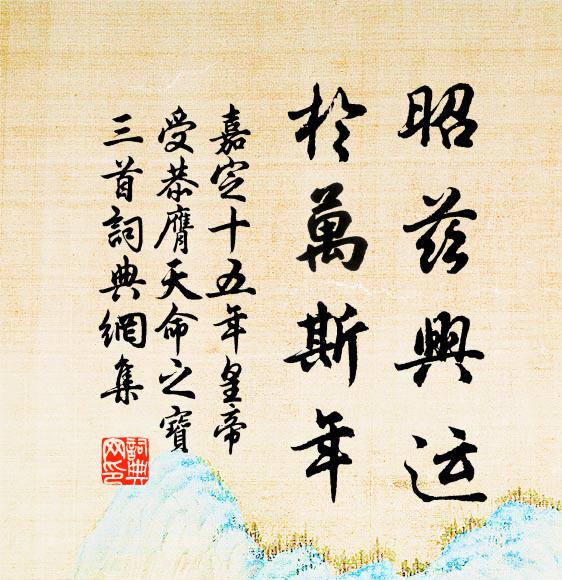 昭茲興运
於萬斯年
嘉定十五年皇帝
受恭膺天命之寶
三首詞典網集
詞典网印